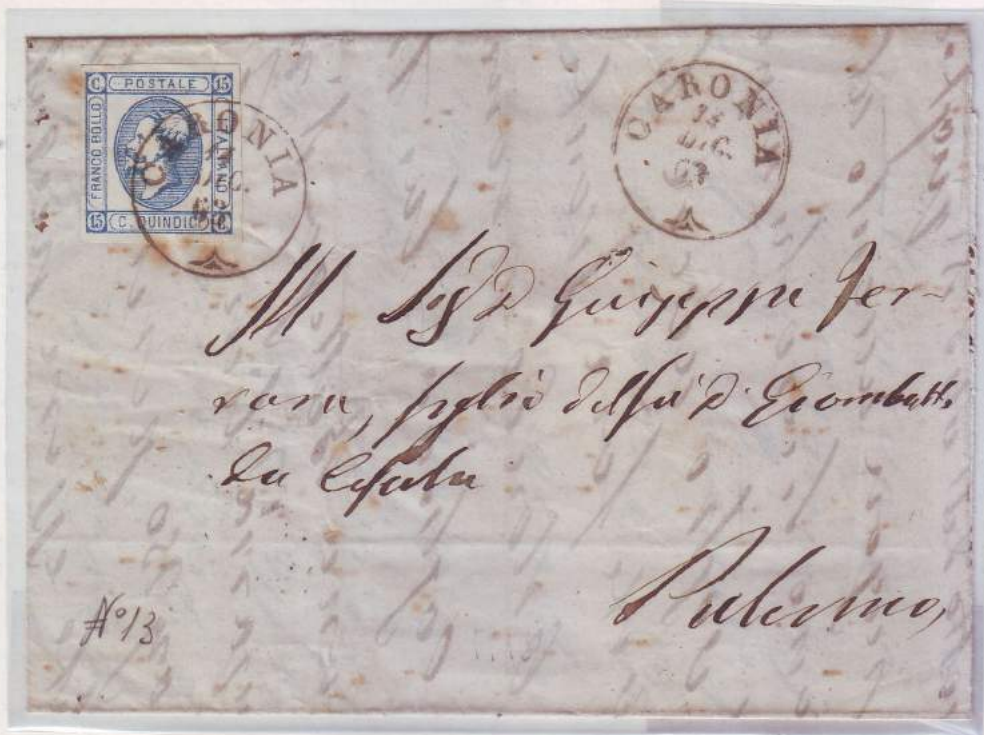 C POSTALE 15
FRANCO BOLLO
15 C. QUINDICI C
CARONIA
DIC.
63
CARONIA
14
DIC.
63
Al Sigr Dn Giuseppe Fer-
rara, figlio del fù Dn Giombatta
da Cefalù
Palermo
No 13